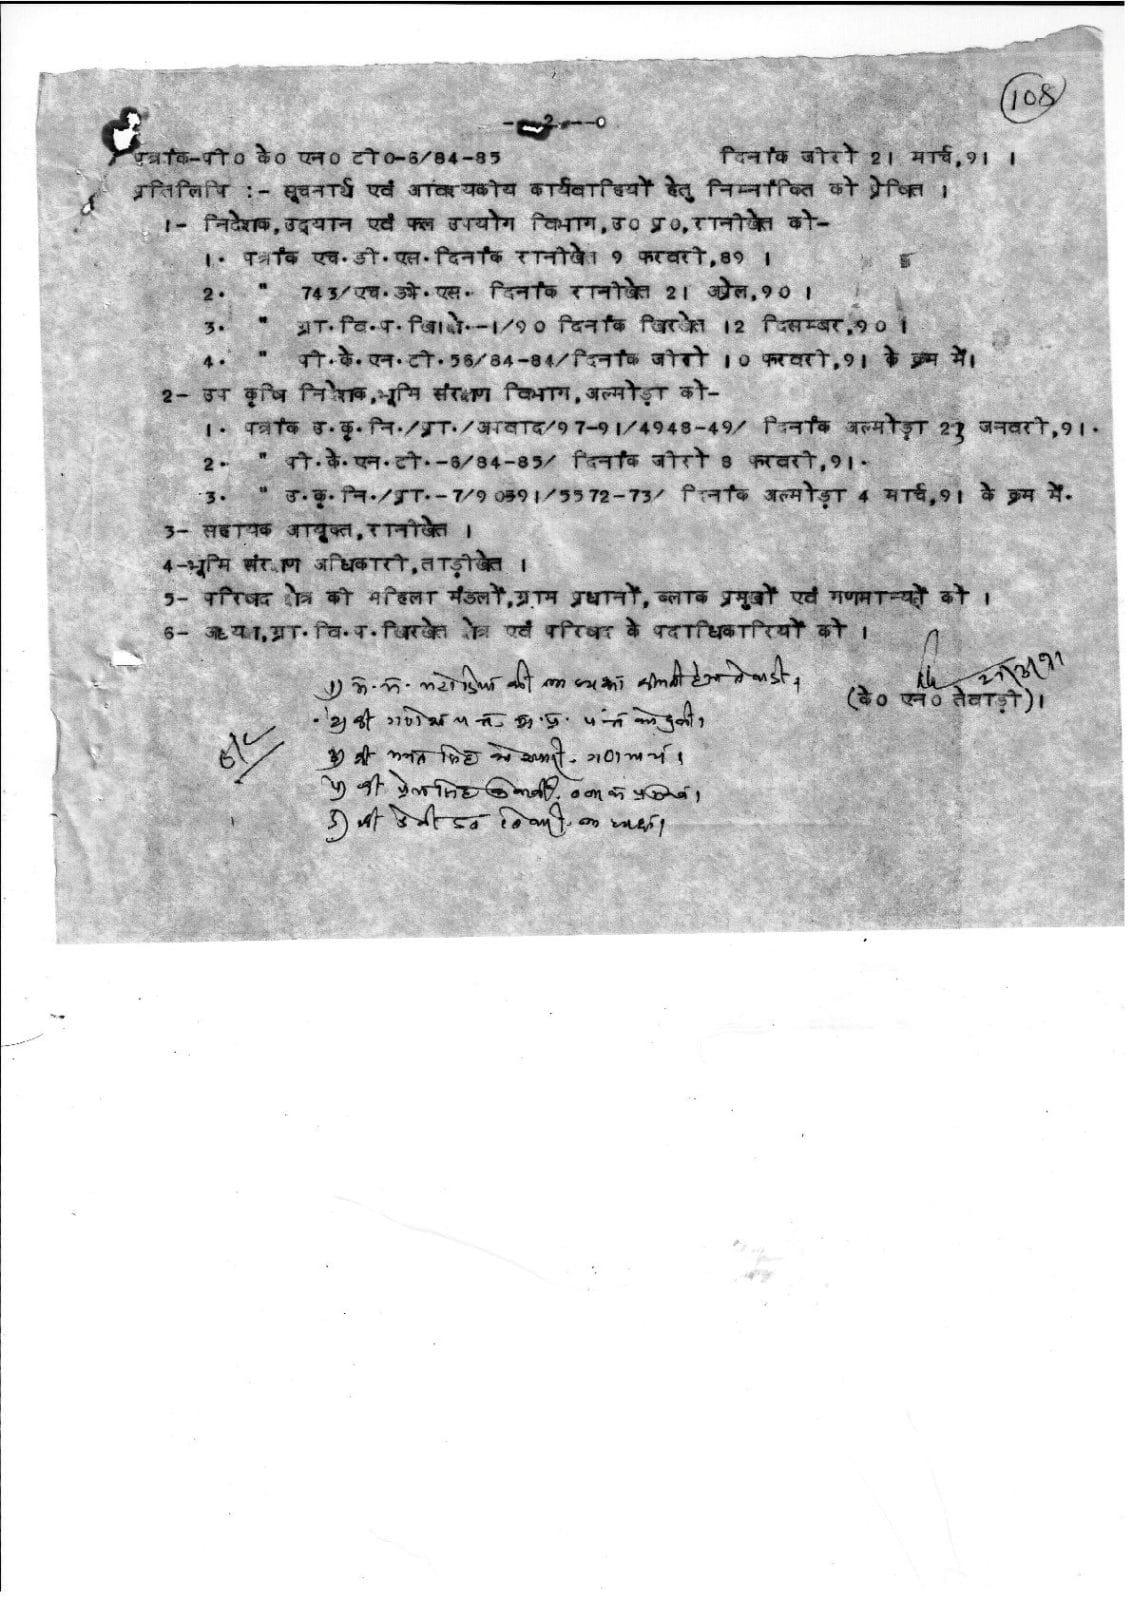 108
--2---0
पत्रांक-पी0 के0 एन0 टी0-6/84-85 दिनांक जोरो 21 मार्च,91 ।
प्रतिलिपि :- सूचनार्थ एवं आवश्यकीय कार्यवाहियों हेतु निम्नांकित को प्रेषित ।
1- निदेशक,उद्यान एवं फल उपयोग विभाग,उ0 प्र0,रानीखेत को-
1. पत्रांक एच.डी.एस.दिनांक रानीखेत 9 फरवरी,89 ।
2. " 743/एच.डी.एस. दिनांक रानीखेत 21 अप्रेल,90 ।
3. " ग्रा.वि.प.खि.क्षे.-1/90 दिनांक खिरखेत 12 दिसम्बर,90 ।
4. " पी.के.एन.टी.56/84-84/दिनांक जोरो 10 फरवरी,91 के क्रम में।
2- उप कृषि निदेशक,भूमि संरक्षण विभाग,अल्मोड़ा को-
1. पत्रांक उ.कृ.नि./प्रा./आवाद/97-91/4948-49/ दिनांक अल्मोड़ा 23 जनवरी,91.
2. " पी.के.एन.टी.-6/84-85/ दिनांक जोरो 8 फरवरी,91.
3. " उ.कृ.नि./प्रा.-7/90591/5572-73/ दिनांक अल्मोड़ा 4 मार्च,91 के क्रम में.
3- सहायक आयुक्त,रानीखेत ।
4-भूमि संरक्षण अधिकारी,ताड़ीखेत ।
5- परिषद क्षेत्र की महिला मंडलों,ग्राम प्रधानों, ब्लाक प्रमुखों एवं गणमान्यों को ।
6- अध्यक्ष,ग्रा.वि.प.खिरखेत क्षेत्र एवं परिषद के पदाधिकारियों को ।
(के0 एन0 तेवाड़ी)।
1) म. म. की अध्यक्षा श्रीमती तेवाडी।
2) श्री गणेश पन्त
3) श्री सिंह गणमान्य।
4) श्री प्रेम सिंह ब्लाक प्रमुख।
5) श्री देवी दत्त तिवारी. अध्यक्ष।